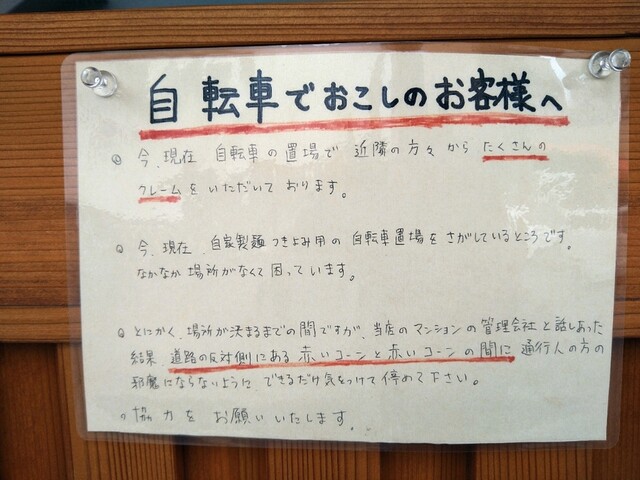 自転車でおこしのお客様へ
◎今、現在 自転車の置場で 近隣の方々から たくさんの
クレームを いただいて おります。
◎今、現在、自家製麺つきよみ用の 自転車置場を さがしているところです。
なかなか 場所がなくて 困って います。
◎とにかく、場所が決まるまでの間ですが、当店のマンションの管理会社と話しあった
結果 道路の反対側にある 赤いコーンと赤いコーンの間に 通行人の方の
邪魔にならないように、できるだけ気をつけて停めて下さい。
◎協力を お願いいたします。